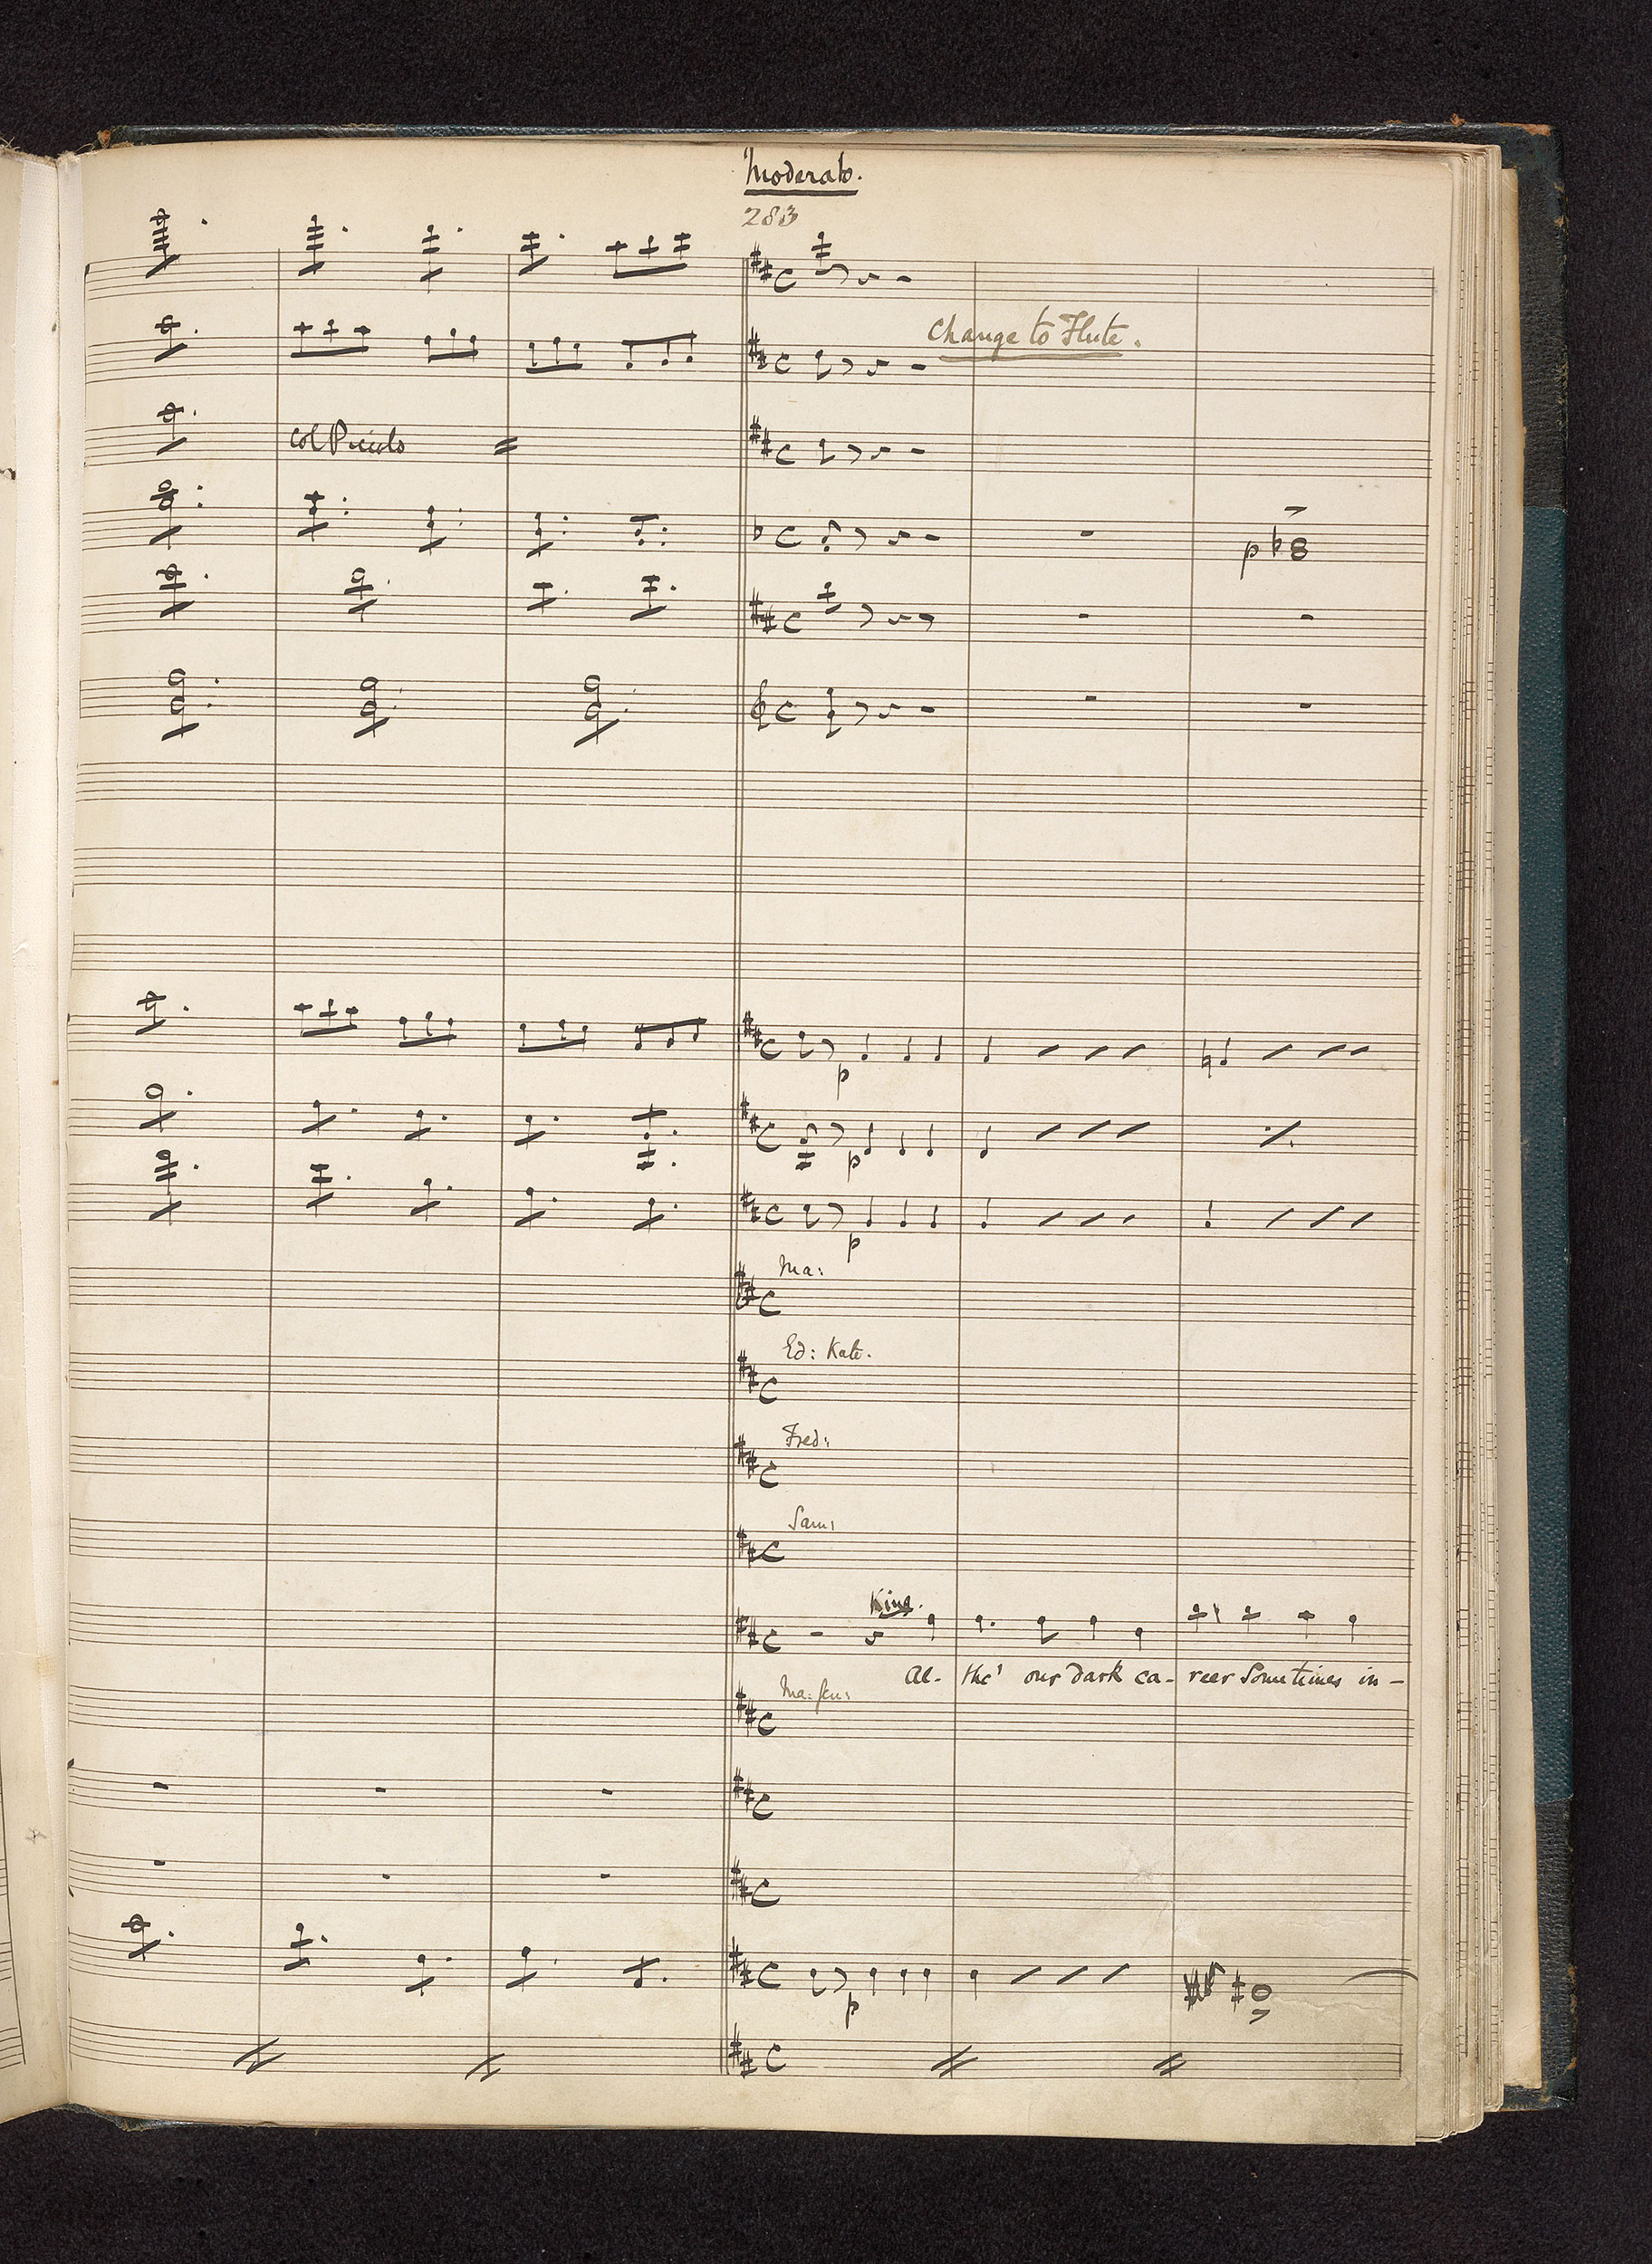 Moderato.
283
Change to Flute.
Col Piccolo
p
p
p
p
Ma:
Ed: Kate.
Fred:
Sam:
King.
Al- tho' our dark ca- reer Sometimes in-
p